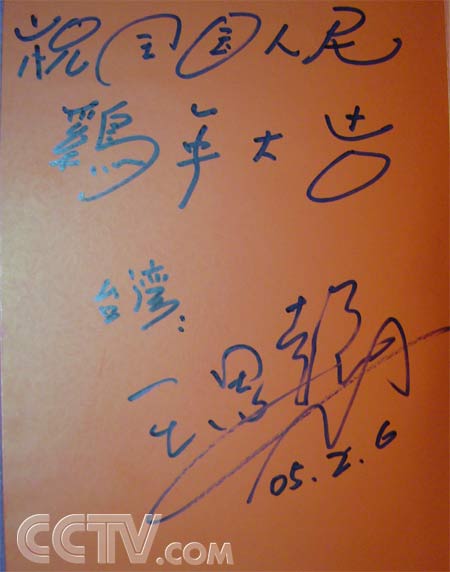 祝全国人民
鷄年大吉
台湾:
05.2.6
CCTV.com